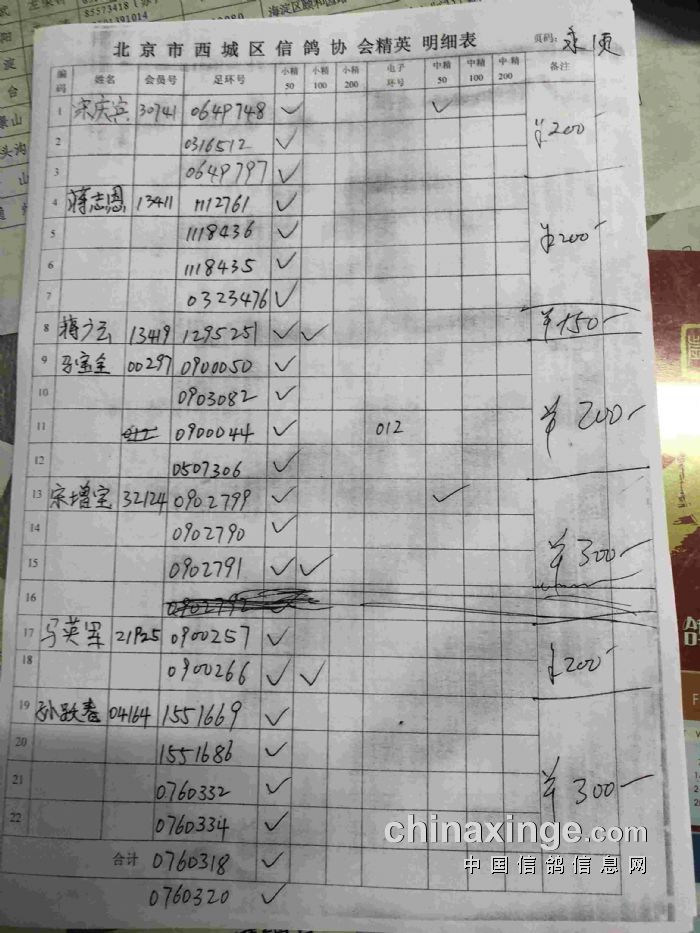 85573418
北京市西城区信鸽协会精英 明细表
页码:
编码 姓名 会员号 足环号 小精50 小精100 小精200 电子环号 中精50 中精100 中精200 备注
1 宋庆宾 30741 0649748 ✓ ✓
2 0316512 ✓ ¥200-
3 0649797 ✓
4 蒋志恩 13411 1112761 ✓
5 1118436 ✓ ¥200-
6 1118435 ✓
7 0323476 ✓
8 蒋广云 13419 1295251 ✓ ✓ ¥150-
9 马宝全 00297 0900050 ✓
10 0903082 ✓
11 0900044 ✓ 012 ¥200-
12 0507306 ✓
13 宋增宝 32124 0902799 ✓ ✓
14 0902790 ✓
15 0902791 ✓ ✓ ¥300-
16 0902792
17 马英军 21925 0900257 ✓
18 0900266 ✓ ✓ ¥200-
19 孙跃春 04164 1551669 ✓
20 1551686 ✓
21 0760332 ✓ ¥300-
22 0760334 ✓
合计 0760318 ✓
0760320 ✓
chinaxinge.com
中国信鸽信息网